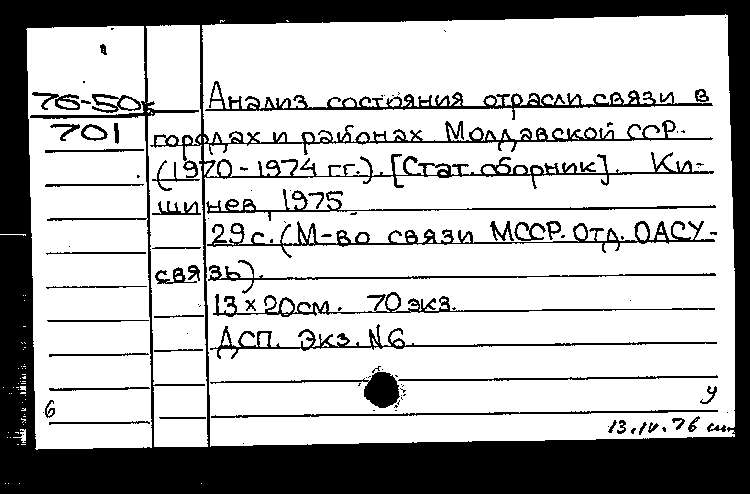 76-50к
701
Анализ состояния отрасли связи в
городах и районах Молдавской ССР.
(1970-1974 гг.). [Стат. сборник]. Ки-
шинев, 1975.
29 с. (М-во связи МССР. Отд. ОАСУ-
связь).
13×20 см. 70 экз.
ДСП. Экз. N6.
6
У
13.IV.76